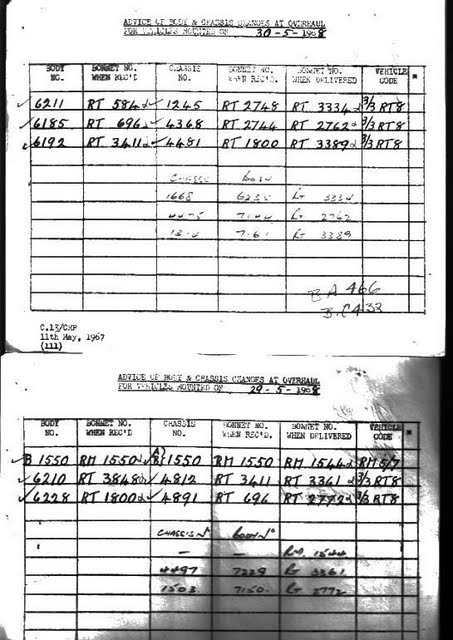 ADVICE OF BODY & CHASSIS CHANGES AT OVERHAUL
FOR VEHICLES MOUNTED ON 30-5-1968
BODY NO. BONNET NO. WHEN REC'D CHASSIS NO. BONNET NO. WHEN REC'D. BONNET NO. WHEN DELIVERED VEHICLE CODE *
✓ 6211 RT 584 ✓ 1245 RT 2748 RT 3334 3/3 RT8
✓ 6185 RT 696 ✓ 4368 RT 2744 RT 2762 3/3 RT8
✓ 6192 RT 3411 ✓ 4481 RT 1800 RT 3389 3/3 RT8
CHASSIS BODY
1668 RT 3334
RT 2762
7161 RT 3389
BA 466
BC 433
C.13/CHP
11th May, 1967
(111)
ADVICE OF BODY & CHASSIS CHANGES AT OVERHAUL
FOR VEHICLES MOUNTED ON 29-5-1968
BODY NO. BONNET NO. WHEN REC'D CHASSIS NO. BONNET NO. WHEN REC'D. BONNET NO. WHEN DELIVERED VEHICLE CODE *
✓ B 1550 RM 1550 ✓ 1550 RM 1550 RM 1544 RM 5/7
✓ 6210 RT 3848 ✓ 4812 RT 3411 RT 3361 3/3 RT8
✓ 6228 RT 1800 ✓ 4891 RT 696 RT 2772 3/3 RT8
CHASSIS Nº BODY Nº
— — RM 1544
4497 7229 RT 3361
1503 7150 RT 2772